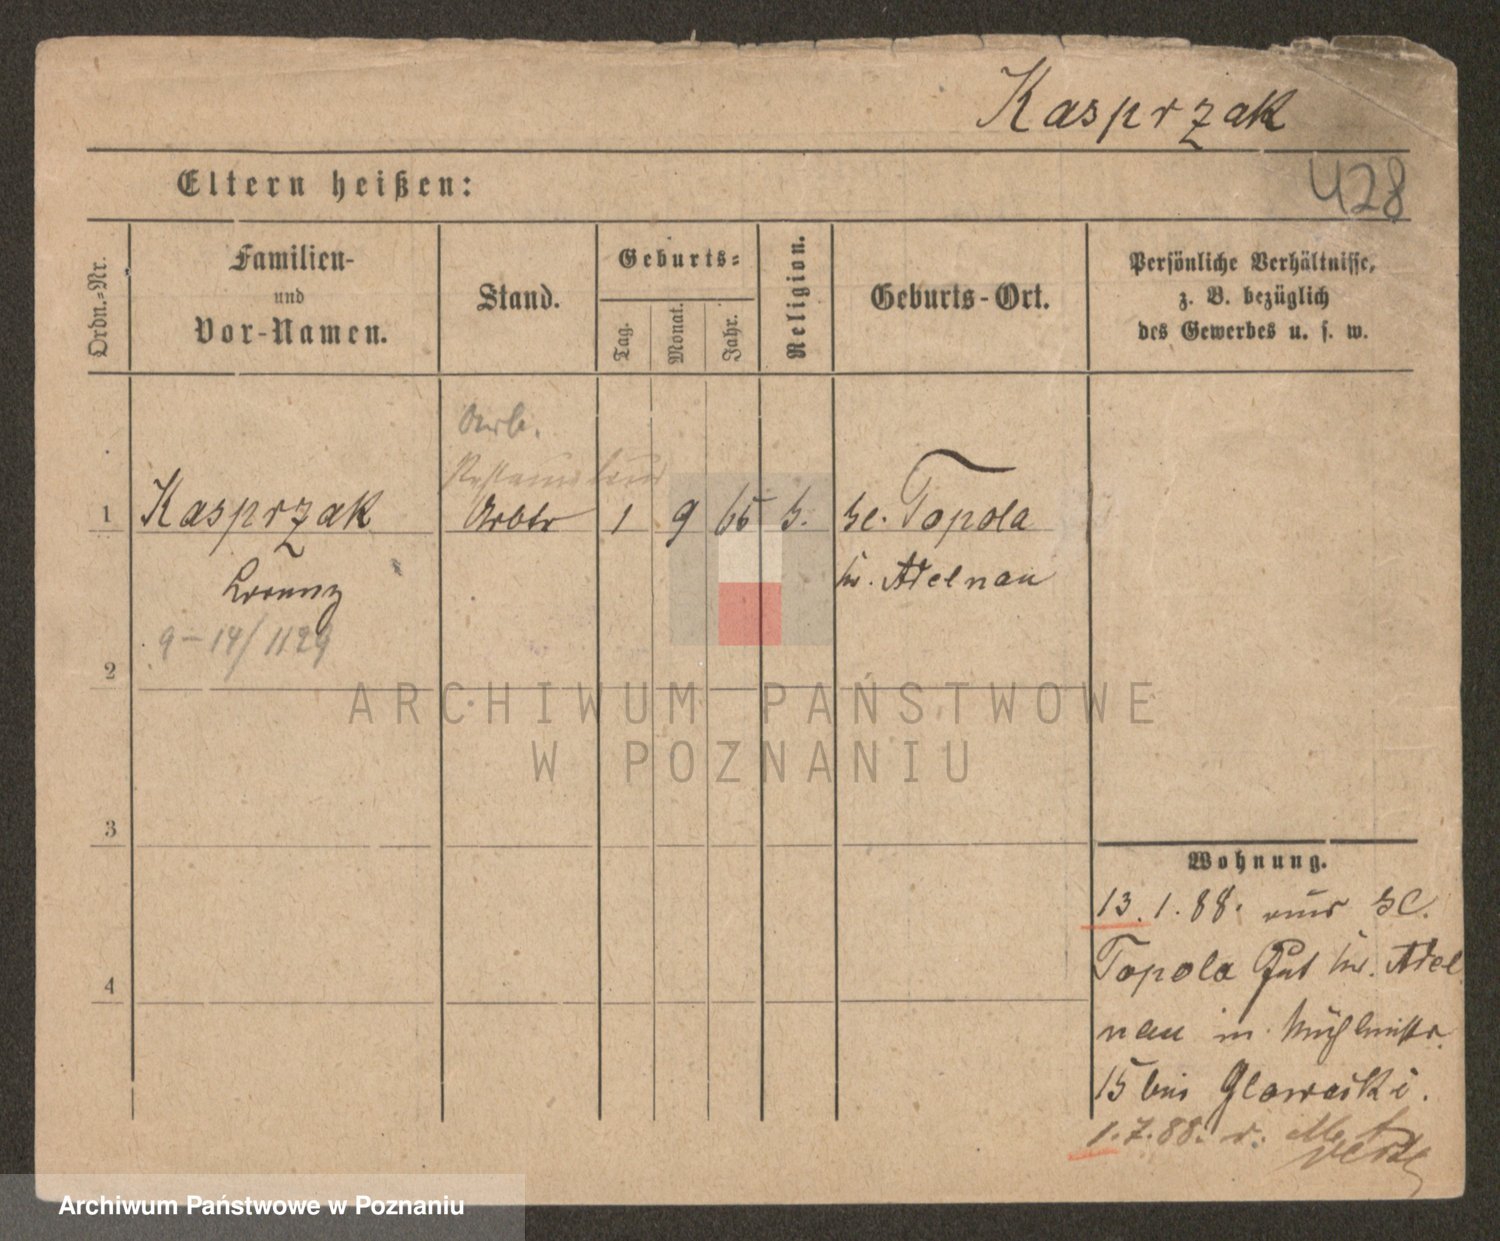 Kasprzak
428
Eltern heißen:
Ordn.-Nr.
Familien-
und
Vor-Namen.
Stand.
Geburts-
Tag.
Monat.
Jahr.
Religion.
Geburts-Ort.
Persönliche Verhältnisse,
z. B. bezüglich
des Gewerbes u. s. w.
Arb.
1 Kasprzak Arbtr 1 9 65 Topola
Lorenz Kr. Adelnau
9-14/1129
2
3
4
ARCHIWUM PAŃSTWOWE
W POZNANIU
Wohnung.
13.1.88. aus
Topola Gut Kr. Adel
nau in Mühlenstr.
15 bei Glowacki.
1.7.88.
Archiwum Państwowe w Poznaniu